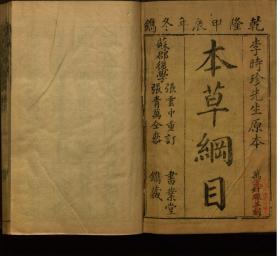 乾隆甲辰年冬鐫
李時珍先生原本
本草綱目
蘇郡後學
張雲中重訂
張青萬全參
書業堂
鐫藏